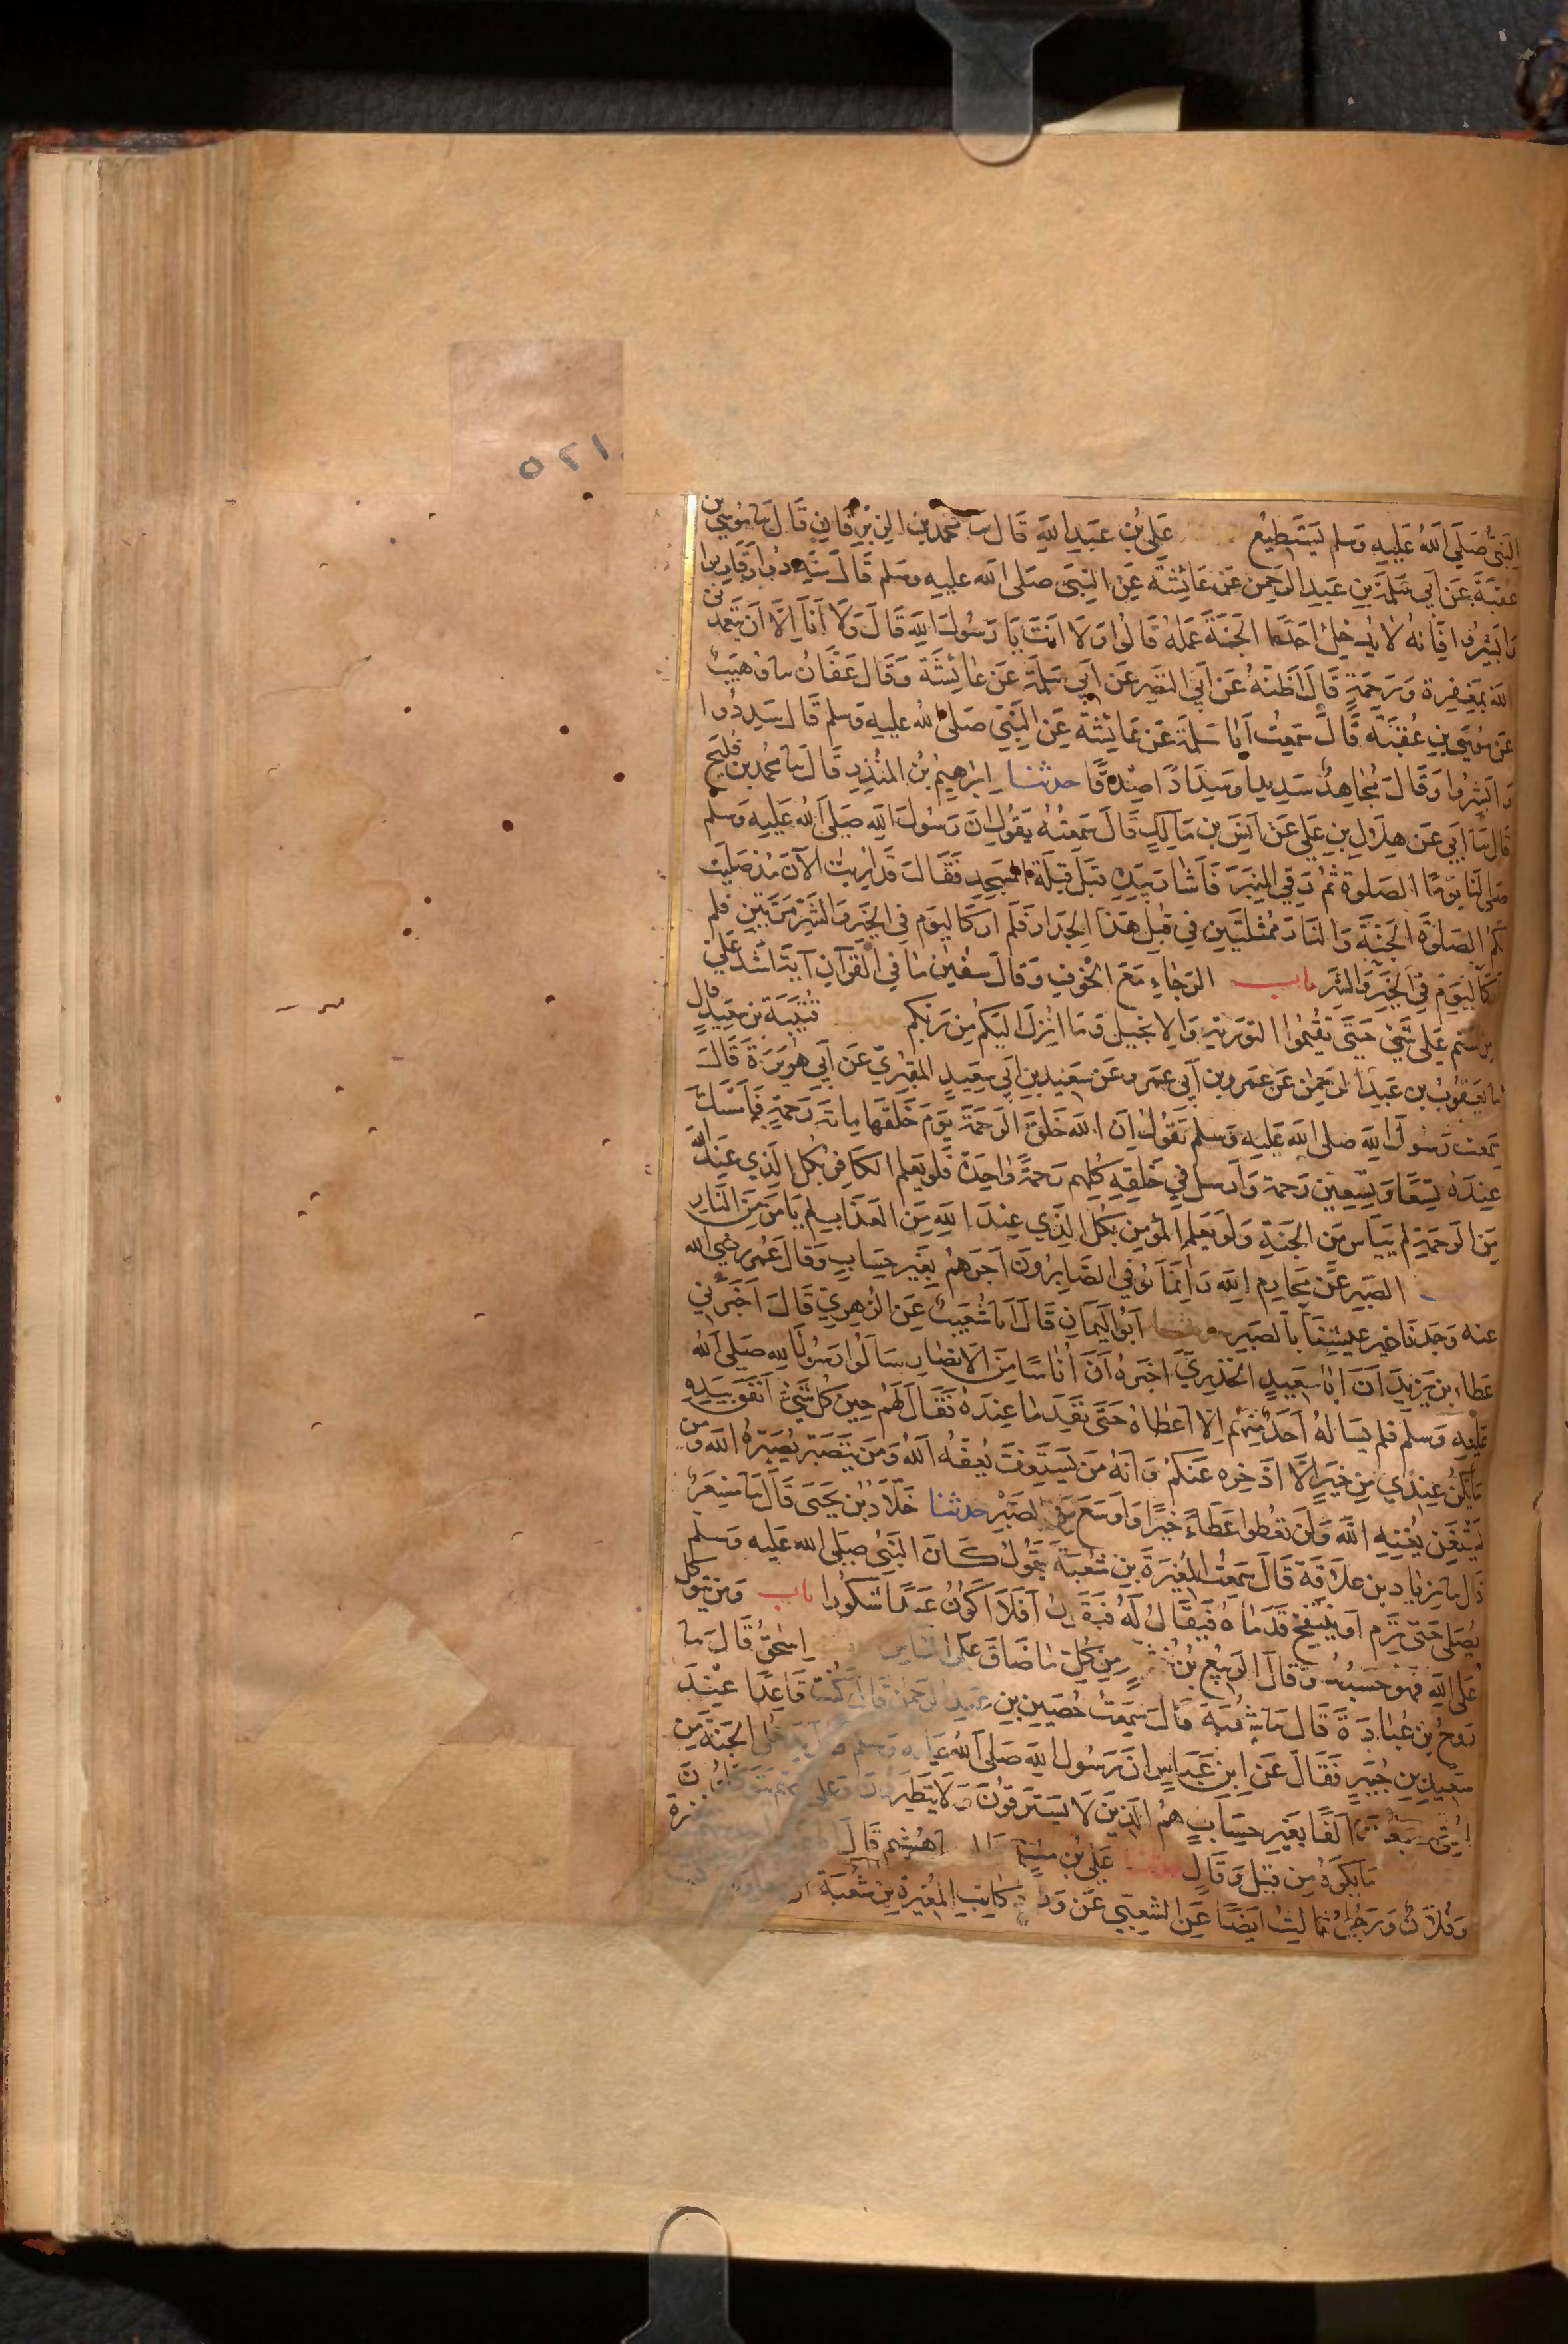 ١٢٥
النبي صلى الله عليه وسلم يستطيع علي بن عبد الله قال سا محمد بن الزبرقان قال سا موسى بن
عقبة عن ابي سلمة بن عبد الرحمن عن عائشة عن النبي صلى الله عليه وسلم قال سددوا وقاربوا
وابشروا فانه لا يدخل احدا الجنة عمله قالوا ولا انت يا رسول الله قال ولا انا الا ان يتغمدني
الله بمغفرة ورحمة قال اظنه عن ابي النضر عن ابي سلمة عن عائشة وقال عفان سا وهيب
عن موسى بن عقبة قال سمعت ابا سلمة عن عائشة عن النبي صلى الله عليه وسلم قال سددوا
وابشروا وقال مجاهد سديدا وسدادا صدقا حدثنا ابراهيم بن المنذر قال سا محمد بن فليح
قال سا ابي عن هلال بن علي عن انس بن مالك قال سمعته يقول ان رسول الله صلى الله عليه وسلم
صلى لنا يوما الصلوة ثم رقي المنبر فاشار بيده قبل قبلة المسجد فقال قد اريت الآن منذ صليت
لكم الصلوة الجنة والنار ممثلتين في قبل هذا الجدار فلم ار كاليوم في الخير والشر مرتين فلم
ار كاليوم في الخير والشر باب الرجاء مع الخوف وقال سفين ما في القرآن آية اشد علي
من لستم على شيء حتى تقيموا التورية والانجيل وما انزل اليكم من ربكم قتيبة بن سعيد قال
سا يعقوب بن عبد الرحمن عن عمرو بن ابي عمرو عن سعيد بن ابي سعيد المقبري عن ابي هريرة قال
سمعت رسول الله صلى الله عليه وسلم يقول ان الله خلق الرحمة يوم خلقها مائة رحمة فامسك
عنده تسعا وتسعين رحمة وارسل في خلقه كلهم رحمة واحدة فلو يعلم الكافر بكل الذي عند الله
من الرحمة لم ييأس من الجنة ولو يعلم المؤمن بكل الذي عند الله من العذاب لم يامن من النار
الصبر عن محارم الله وانما يوفي الصابرون اجرهم بغير حساب وقال عمر رضي الله
عنه وجدنا خير عيشنا بالصبر حدثنا ابو اليمان قال انا شعيب عن الزهري قال اخبرني
عطاء بن يزيد ان ابا سعيد الخدري اخبره ان اناسا من الانصار سالوا رسول الله صلى الله
عليه وسلم فلم يساله احد منهم الا اعطاه حتى نفد ما عنده فقال لهم حين كل شيء انفق بيده
ما يكن عندي من خير الا ادخره عنكم وانه من يستعفف يعفه الله ومن يتصبر يصبره الله ومن
يستغن يغنه الله ولن تعطوا عطاء خيرا واوسع من الصبر حدثنا خلاد بن يحيى قال سا مسعر
قال سا زياد بن علاقة قال سمعت المغيرة بن شعبة يقول كان النبي صلى الله عليه وسلم
يصلي حتى ترم او ينتفخ قدماه فيقال له فيقول افلا اكون عبدا شكورا باب ومن يتوكل
على الله فهو حسبه وقال الربيع بن من كل ما ضاق على الناس اسحق قال سا
روح بن عبادة قال سا شعبة قال سمعت حصين بن عبد الرحمن قال كنت قاعدا عند
سعيد بن جبير فقال عن ابن عباس ان رسول الله صلى الله عليه وسلم قال يدخل الجنة من
امتي سبعون الفا بغير حساب هم الذين لا يسترقون ولا يتطيرون وعلى ربهم يتوكلون
ما يكره من قيل وقال حدثنا علي بن مسلم هشيم قال
وفلان ورجل ثالث ايضا عن الشعبي عن وراد كاتب المغيرة بن شعبة ان